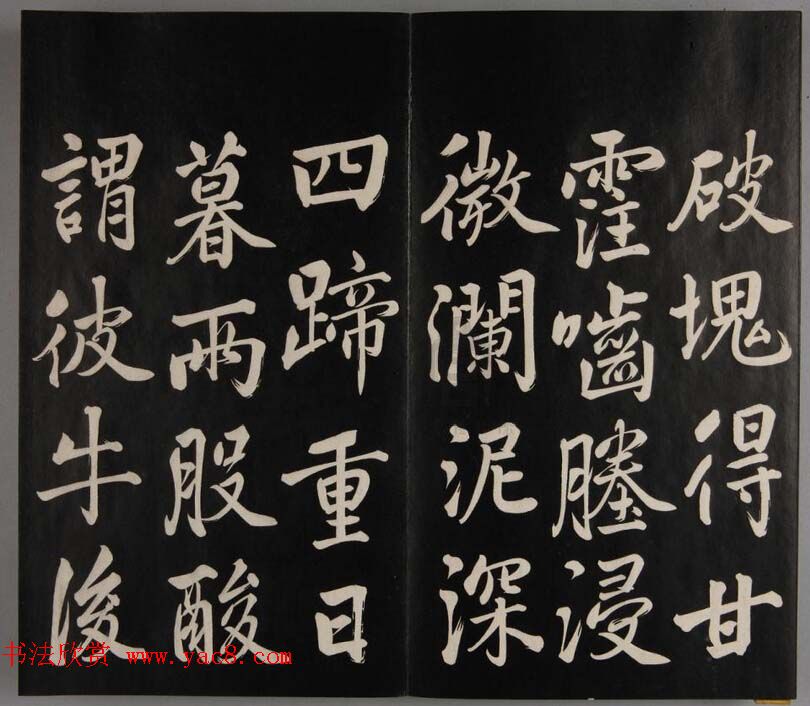 破塊得甘
霔嚙塍浸
微瀾泥深
四蹄重日
暮兩股酸
謂彼牛後
书法欣赏 www.yac8.com